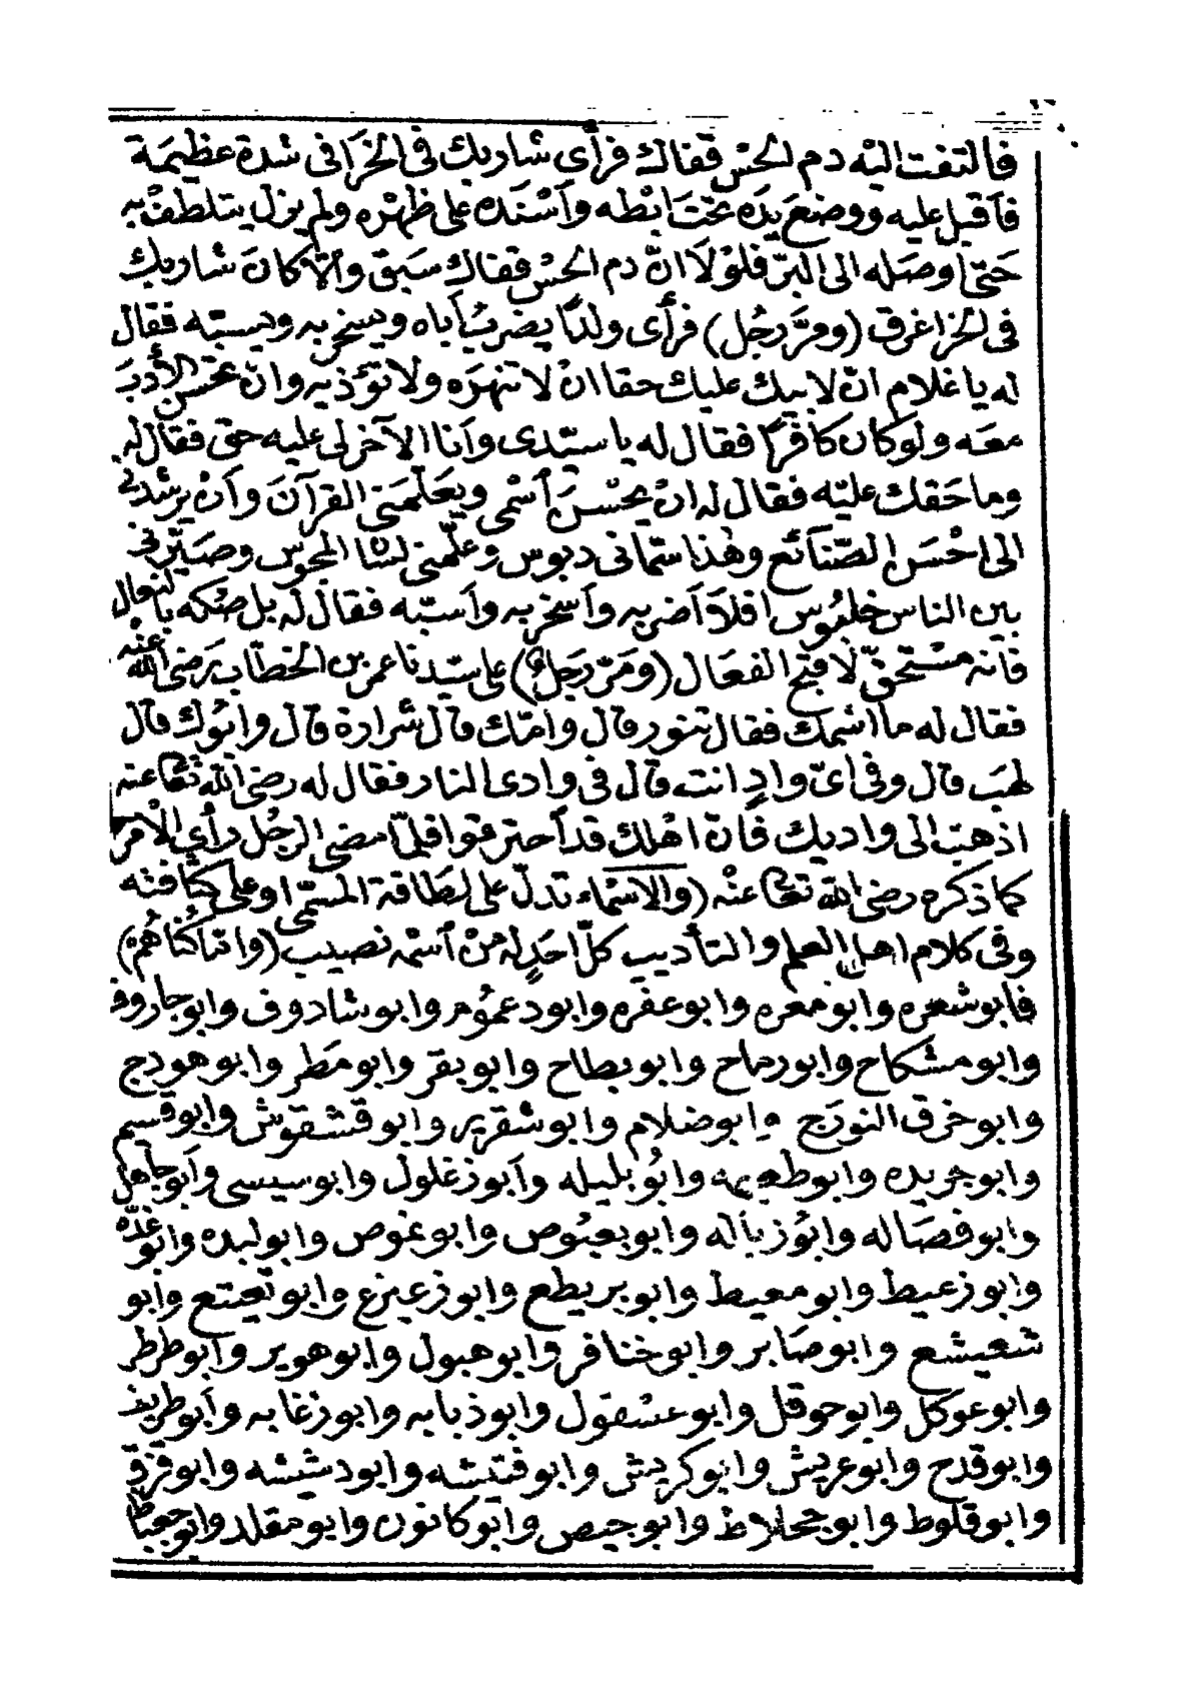 فالتفت اليه دم الحس فقاك فرأى شاربك في الخرا في شدة عظيمة
فأقبل عليه ووضع يده تحت ابطه وأسنده على ظهره ولم يزل يتلطف به
حتى اوصله الى البر فلولا ان دم الحس فقاك سبق والا كان شاربك
في الخرا غرق (ومر رجل) فرأى ولدا يضرب أباه ويسخر به ويسبه فقال
له يا غلام ان لابيك عليك حقا ان لا تنهره ولا تؤذيه وان تحسن الأدب
معه ولو كان كافرا فقال له يا سيدى وأنا الآخر لى عليه حق فقال له
وما حقك عليه فقال له ان يحسن أسمى ويعلمنى القرآن وأن يرشدنى
الى احسن الصنائع وهذا سمانى دبوس وعلمنى لسان المجوس وصيرنى
بين الناس خلبوس افلا أضربه وأسخر به وأسبه فقال له بل صكه بالنعال
فانه مستحق لاقبح الفعال (ومر رجل) على سيدنا عمر بن الخطاب رضى الله عنه
فقال له ما اسمك فقال تنور قال وامك قال شرارة قال وابوك قال
لهب قال وفى اى واد انت قال فى وادى النار فقال له رضى الله تعا عنه
اذهب الى واديك فان اهلك قد أحترقوا فلما مضى الرجل رأى الامر
كما ذكره رضى الله تعا عنه (والاسماء تدل على لطافة المسمى او على كثافته
وفى كلام اهل العلم والتأديب كل احد له من أسمه نصيب (واما كناهم)
فابو شعره وابو معره وابو عفره وابو دعموم وابو شادوف وابو جاروف
وابو مشكاح وابو رماح وابو بطاح وابو بقر وابو مطر وابو هودج
وابو خرق النورج وابو ضلام وابو شقرير وابو قشقوش وابو قسيم
وابو جريده وابو طعيمه وابو بليله وأبو زغلول وابو سيسى وأبو جاهل
وابو فصاله وابو زباله وابو بعبوص وابو غوص وابو لبده وابو غده
وابو زعيط وابو معيط وابو بريطع وابو زعيزع وابو تعيتع وابو
شعيشع وابو صابر وابو خنافر وابو هبول وابو هوير وابو طرطر
وابو عوكل وابو حوقل وابو عسقول وابو ذبابه وابو زغابه وأبو
وابو قدح وابو عريش وابو كريش وابو فتيشه وابو دشيشه وابو
وابو قلوط وابو جحلاط وابو جعيص وابو كانون وابو مقلد وابو